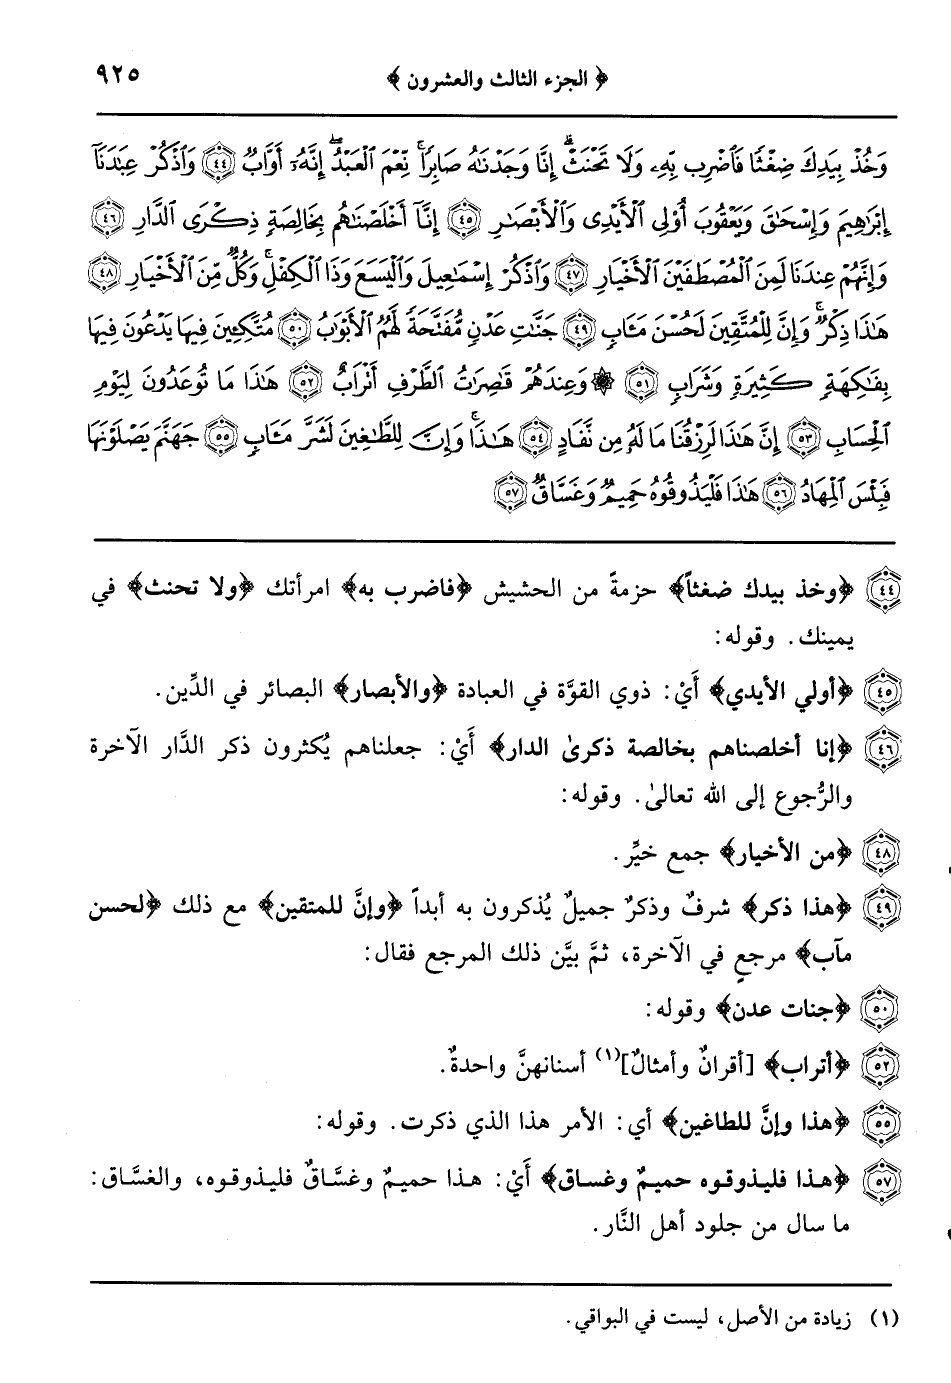 ﴿ الجزء الثالث والعشرون ﴾ ٩٢٥
وَخُذْ بِيَدِكَ ضِغْثًا فَٱضْرِب بِّهِۦ وَلَا تَحْنَثْ ۗ إِنَّا وَجَدْنَٰهُ صَابِرًا ۚ نِّعْمَ ٱلْعَبْدُ ۖ إِنَّهُۥٓ أَوَّابٌ ۝٤٤ وَٱذْكُرْ عِبَٰدَنَآ
إِبْرَٰهِيمَ وَإِسْحَٰقَ وَيَعْقُوبَ أُو۟لِى ٱلْأَيْدِى وَٱلْأَبْصَٰرِ ۝٤٥ إِنَّآ أَخْلَصْنَٰهُم بِخَالِصَةٍ ذِكْرَى ٱلدَّارِ ۝٤٦
وَإِنَّهُمْ عِندَنَا لَمِنَ ٱلْمُصْطَفَيْنَ ٱلْأَخْيَارِ ۝٤٧ وَٱذْكُرْ إِسْمَٰعِيلَ وَٱلْيَسَعَ وَذَا ٱلْكِفْلِ ۖ وَكُلٌّ مِّنَ ٱلْأَخْيَارِ ۝٤٨
هَٰذَا ذِكْرٌ ۚ وَإِنَّ لِلْمُتَّقِينَ لَحُسْنَ مَـَٔابٍ ۝٤٩ جَنَّٰتِ عَدْنٍ مُّفَتَّحَةً لَّهُمُ ٱلْأَبْوَٰبُ ۝٥٠ مُتَّكِـِٔينَ فِيهَا يَدْعُونَ فِيهَا
بِفَٰكِهَةٍ كَثِيرَةٍ وَشَرَابٍ ۝٥١ ۞ وَعِندَهُمْ قَٰصِرَٰتُ ٱلطَّرْفِ أَتْرَابٌ ۝٥٢ هَٰذَا مَا تُوعَدُونَ لِيَوْمِ
ٱلْحِسَابِ ۝٥٣ إِنَّ هَٰذَا لَرِزْقُنَا مَا لَهُۥ مِن نَّفَادٍ ۝٥٤ هَٰذَا ۚ وَإِنَّ لِلطَّٰغِينَ لَشَرَّ مَـَٔابٍ ۝٥٥ جَهَنَّمَ يَصْلَوْنَهَا
فَبِئْسَ ٱلْمِهَادُ ۝٥٦ هَٰذَا فَلْيَذُوقُوهُ حَمِيمٌ وَغَسَّاقٌ ۝٥٧
٤٤ ﴿وخذ بيدك ضغثاً﴾ حزمةً من الحشيش ﴿فاضرب به﴾ امرأتك ﴿ولا تحنث﴾ في
يمينك. وقوله:
٤٥ ﴿أولي الأيدي﴾ أَيْ: ذوي القوَّة في العبادة ﴿والأبصار﴾ البصائر في الدِّين.
٤٦ ﴿إنا أخلصناهم بخالصة ذكرىٰ الدار﴾ أَيْ: جعلناهم يُكثرون ذكر الدَّار الآخرة
والرُّجوع إلى الله تعالىٰ. وقوله:
٤٨ ﴿من الأخيار﴾ جمع خيِّر.
٤٩ ﴿هذا ذكر﴾ شرفٌ وذكرٌ جميلٌ يُذكرون به أبداً ﴿وإنَّ للمتقين﴾ مع ذلك ﴿لحسن
مآب﴾ مرجعٍ في الآخرة، ثمَّ بيَّن ذلك المرجع فقال:
٥٠ ﴿جنات عدن﴾ وقوله:
٥٢ ﴿أتراب﴾ [أقرانٌ وأمثالٌ](١) أسنانهنَّ واحدةٌ.
٥٥ ﴿هذا وإنَّ للطاغين﴾ أي: الأمر هذا الذي ذكرت. وقوله:
٥٧ ﴿هذا فليذوقوه حميمٌ وغساق﴾ أَيْ: هذا حميمٌ وغسَّاقٌ فليذوقوه، والغسَّاق:
ما سال من جلود أهل النَّار.
(١) زيادة من الأصل، ليست في البواقي.